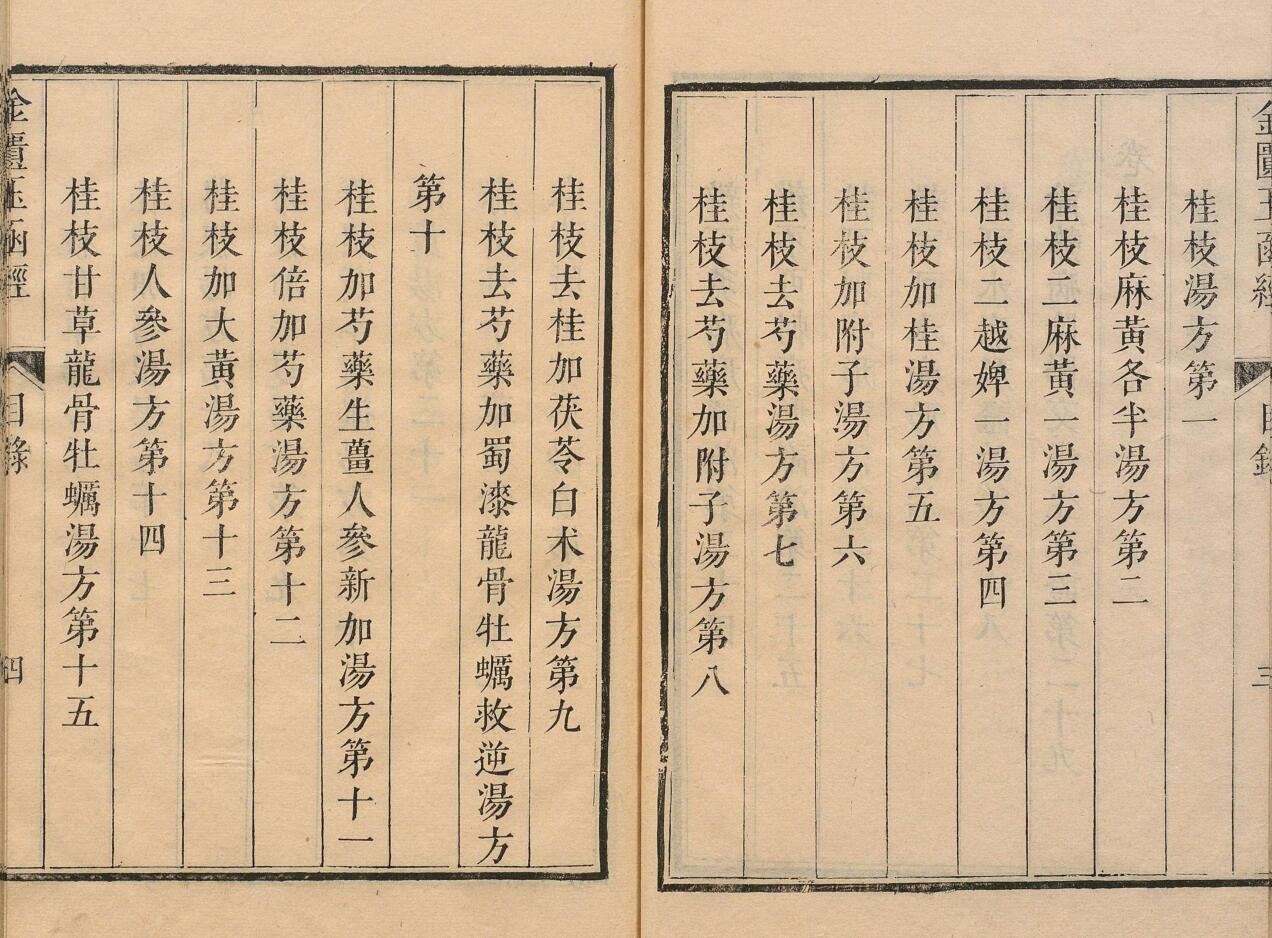 金匱玉函經 目錄 三
桂枝湯方第一
桂枝麻黃各半湯方第二
桂枝二麻黃一湯方第三
桂枝二越婢一湯方第四
桂枝加桂湯方第五
桂枝加附子湯方第六
桂枝去芍藥湯方第七
桂枝去芍藥加附子湯方第八
桂枝去桂加茯苓白术湯方第九
桂枝去芍藥加蜀漆龍骨牡蠣救逆湯方
第十
桂枝加芍藥生薑人參新加湯方第十一
桂枝倍加芍藥湯方第十二
桂枝加大黃湯方第十三
桂枝人參湯方第十四
桂枝甘草龍骨牡蠣湯方第十五
金匱玉函經 目錄 四